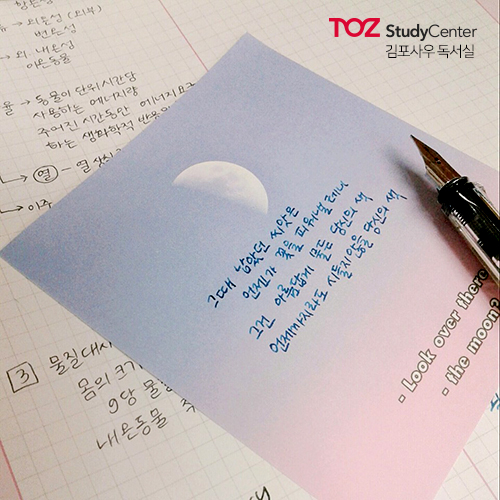 TOZ StudyCenter
김포사우 독서실
항온성
외온성 (외부)
변온성
→ 외. 내온성
이온동물
율 → 동물이 단위시간당
사용하는 에너지량
주어진 시간동안 에너지요구
하는 생화학적 반응의
→ 열 -
→ 이주
그때 남았던 씨앗은
언젠가 꽃을 피워낼 테니
그건 아름답게 물든 당신의 색
언제까지라도 시들지않을 당신의 색
- Look over there
- the moon?
3 물질대사
몸의 크기
g당 물질
내온동물